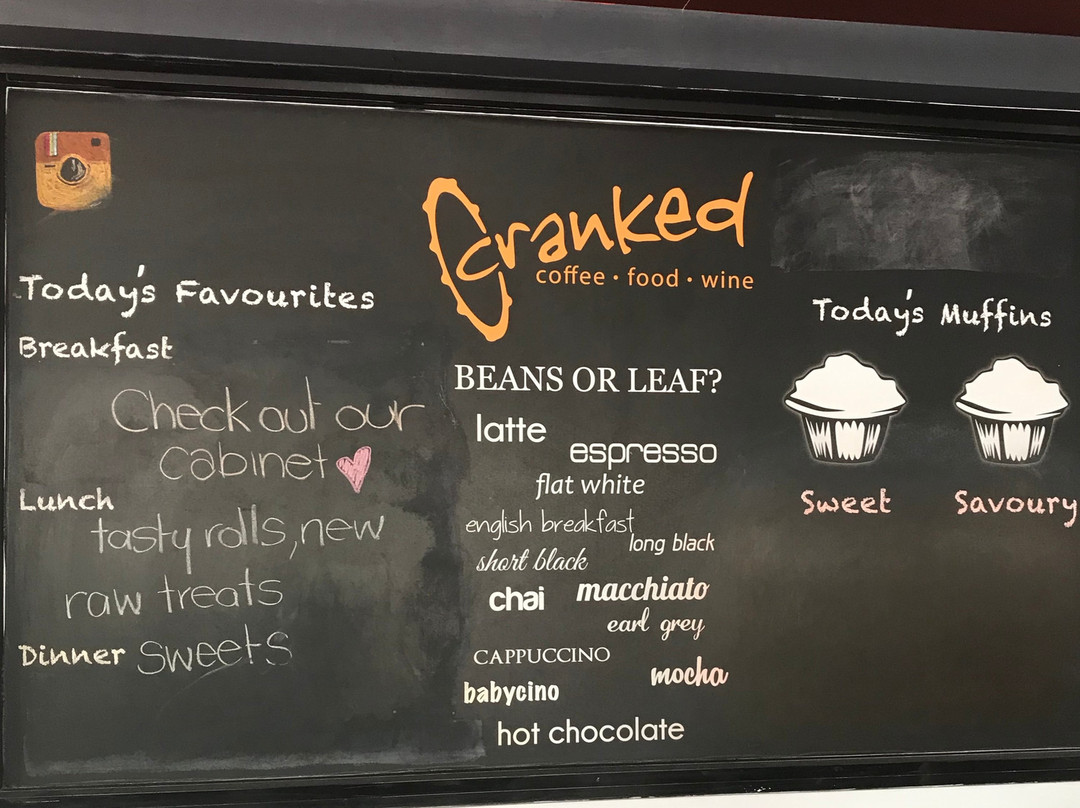 Today's Favourites
Breakfast
Check out our
cabinet
Lunch
tasty rolls, new
raw treats
Dinner sweets
Cranked
coffee • food • wine
BEANS OR LEAF?
latte
espresso
flat white
english breakfast
long black
short black
chai
macchiato
earl grey
CAPPUCCINO
mocha
babycino
hot chocolate
Today's Muffins
Sweet
Savoury